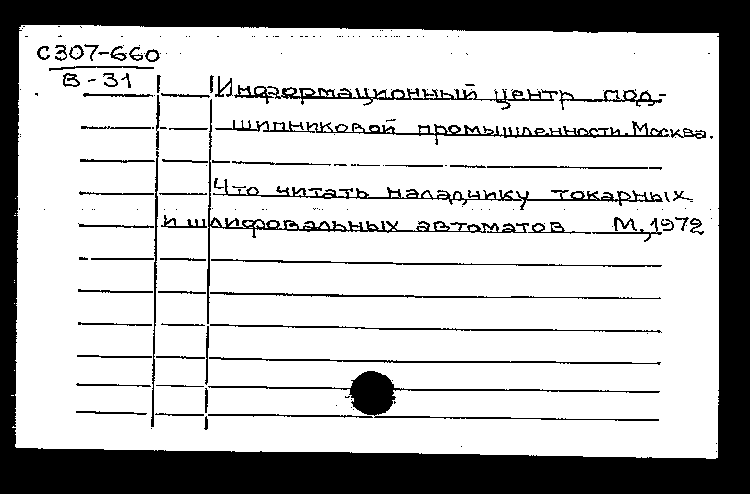 С307-660
В-31
Информационный центр под-
шипниковой промышленности. Москва.
Что читать наладчику токарных
и шлифовальных автоматов М., 1972